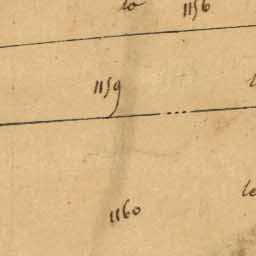 la 1156
1159
1160
le